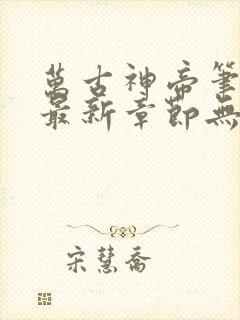 萬古神帝筆
最新章節無
宋慧喬